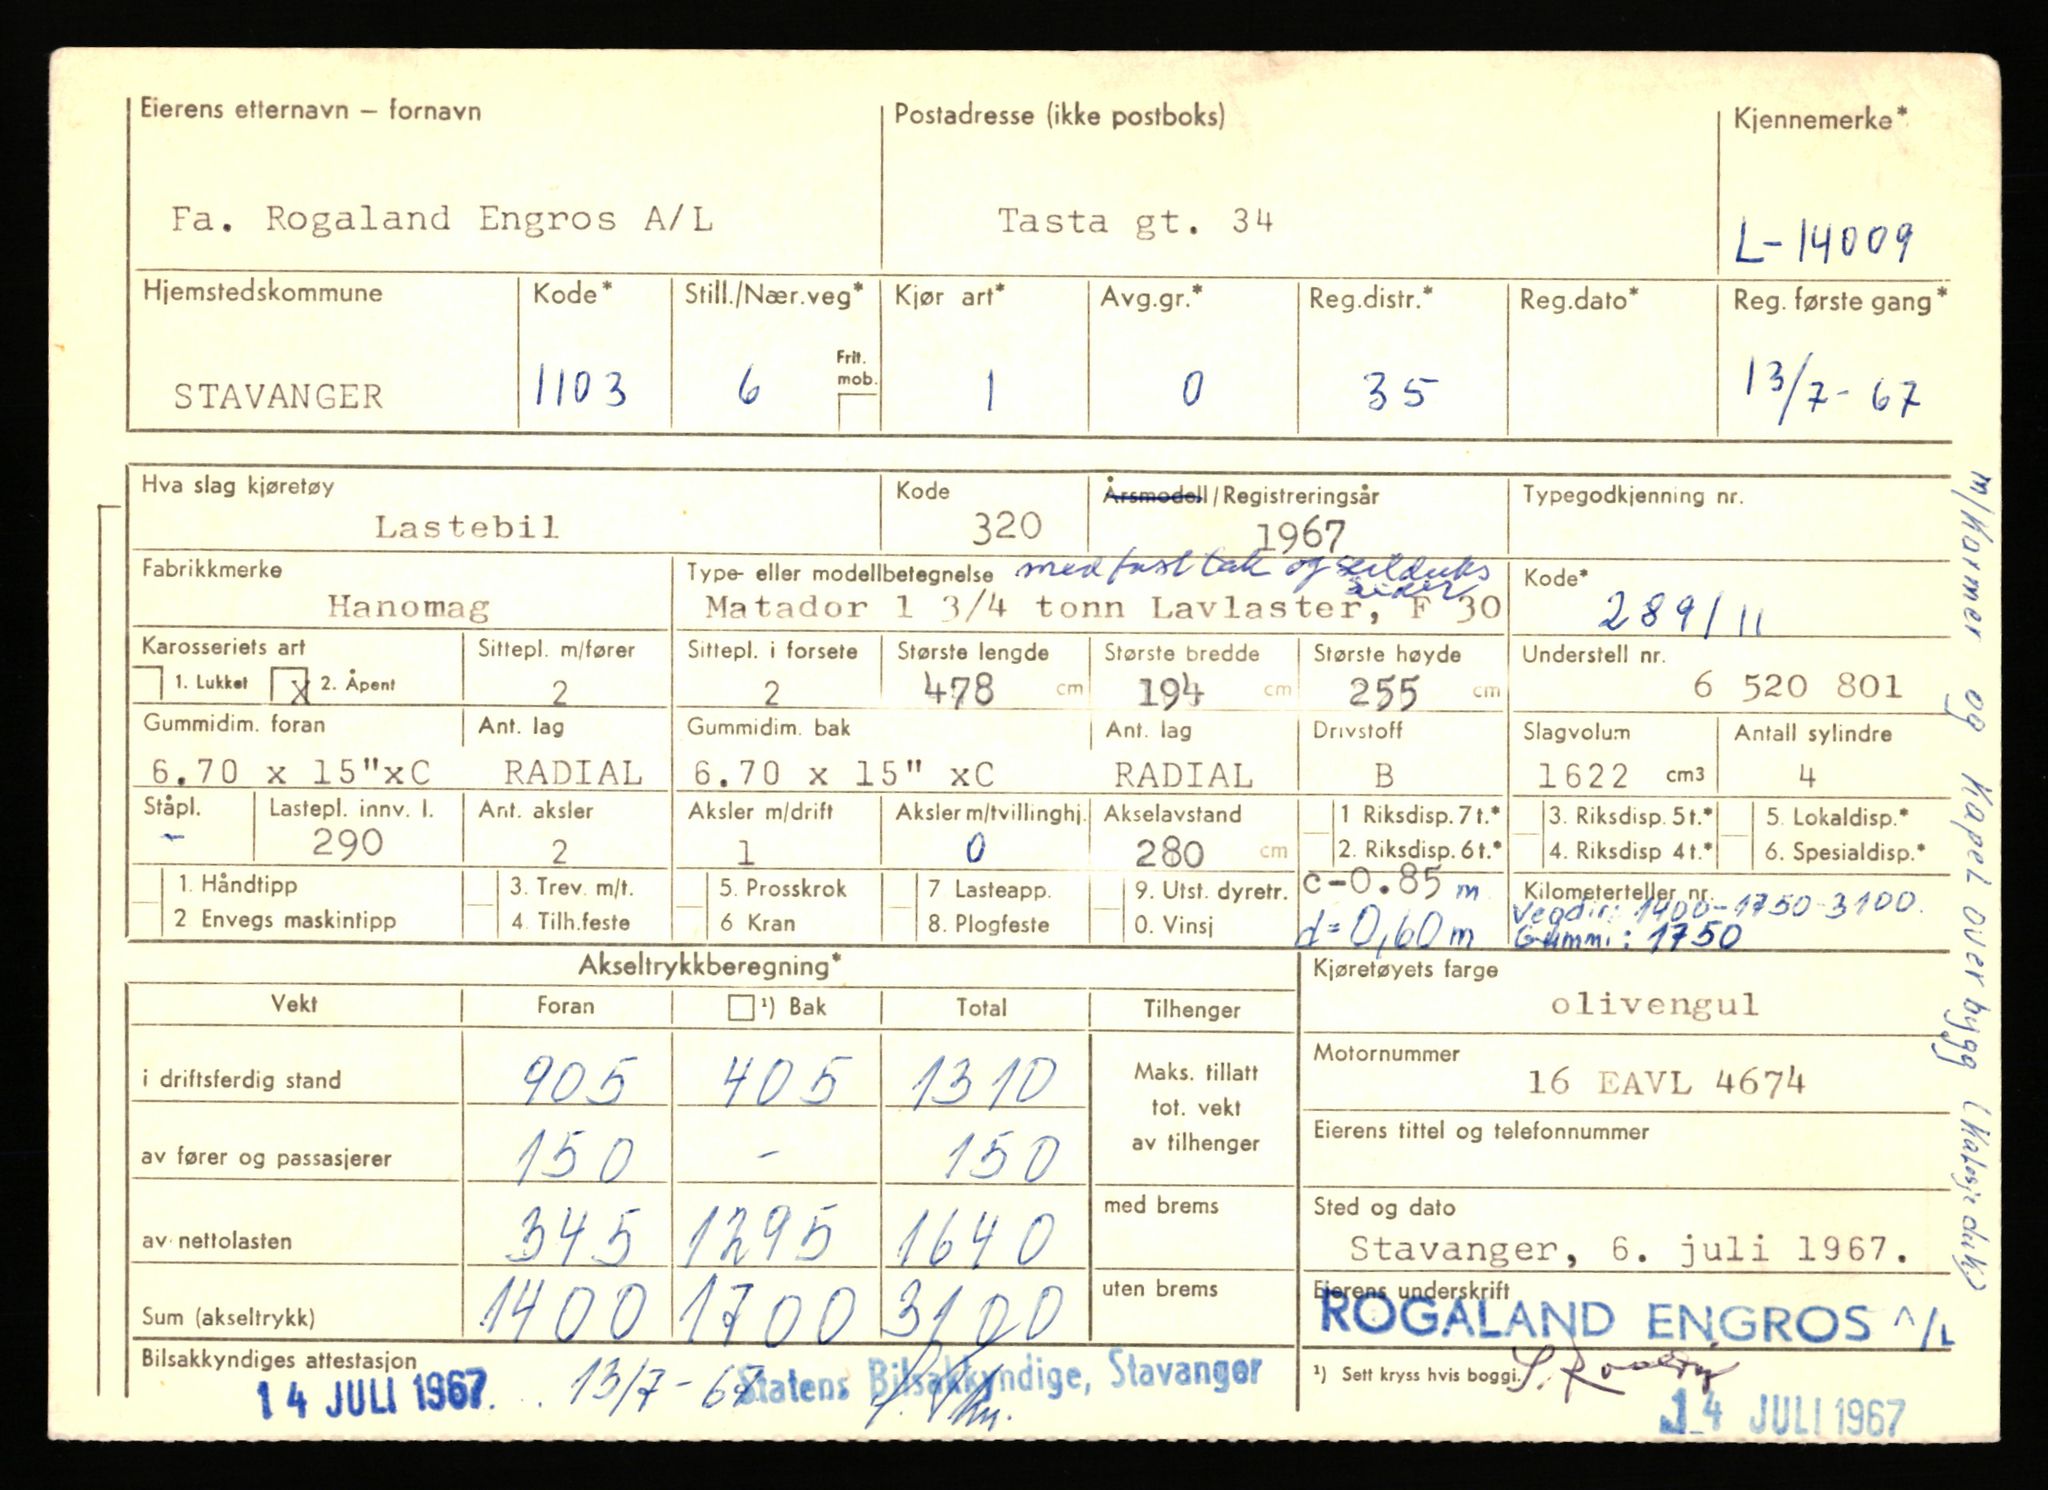 Eierens etternavn – fornavn
Postadresse (ikke postboks)
Kjennemerke*
Fa. Rogaland Engros A/L
Tasta gt. 34
L-14009
Hjemstedskommune
Kode*
Still./Nær.veg*
Kjør art*
Avg.gr.*
Reg.distr.*
Reg.dato*
Reg. første gang*
STAVANGER
1103
6
Frit. mob.
1
0
35
13/7-67
Hva slag kjøretøy
Kode
Årsmodell/Registreringsår
Typegodkjenning nr.
Lastebil
320
1967
Fabrikkmerke
Type- eller modellbetegnelse
med fast tak og seilduks
sider
Kode*
Hanomag
Matador 1 3/4 tonn Lavlaster, F 30
289/11
Karosseriets art
Sittepl. m/fører
Sittepl. i forsete
Største lengde
Største bredde
Største høyde
Understell nr.
1. Lukket
X 2. Åpent
2
2
478 cm
194 cm
255 cm
6 520 801
Gummidim. foran
Ant. lag
Gummidim. bak
Ant. lag
Drivstoff
Slagvolum
Antall sylindre
6.70 x 15"xC
RADIAL
6.70 x 15" xC
RADIAL
B
1622 cm3
4
Ståpl.
Lastepl. innv. l.
Ant. aksler
Aksler m/drift
Aksler m/tvillinghj.
Akselavstand
1 Riksdisp. 7 t.*
3. Riksdisp. 5 t.*
5. Lokaldisp.*
-
290
2
1
0
280 cm
2. Riksdisp. 6 t.*
4. Riksdisp 4 t.*
6. Spesialdisp.*
1. Håndtipp
3. Trev. m/t.
5. Prosskrok
7 Lasteapp.
9. Utst. dyretr.
c-0.85 m
Kilometerteller nr.
Vegdir: 1400-1750-3100.
2 Envegs maskintipp
4. Tilh.feste
6 Kran
8. Plogfeste
0. Vinsj
d=0,60 m
Gummi: 1750
m/Karmer og Kapel overbygg
Akseltrykkberegning*
Kjøretøyets farge
olivengul
Vekt
Foran
¹) Bak
Total
Tilhenger
i driftsferdig stand
905
405
1310
Maks. tillatt
tot. vekt
av tilhenger
Motornummer
16 EAVL 4674
av fører og passasjerer
150
-
150
Eierens tittel og telefonnummer
av nettolasten
345
1295
1640
med brems
Sted og dato
Stavanger, 6. juli 1967.
Sum (akseltrykk)
1400
1700
3100
uten brems
Eierens underskrift
ROGALAND ENGROS A/L
Bilsakkyndiges attestasjon
14 JULI 1967.
13/7-67
Statens Bilsakkyndige, Stavanger
¹) Sett kryss hvis boggi.
14 JULI 1967